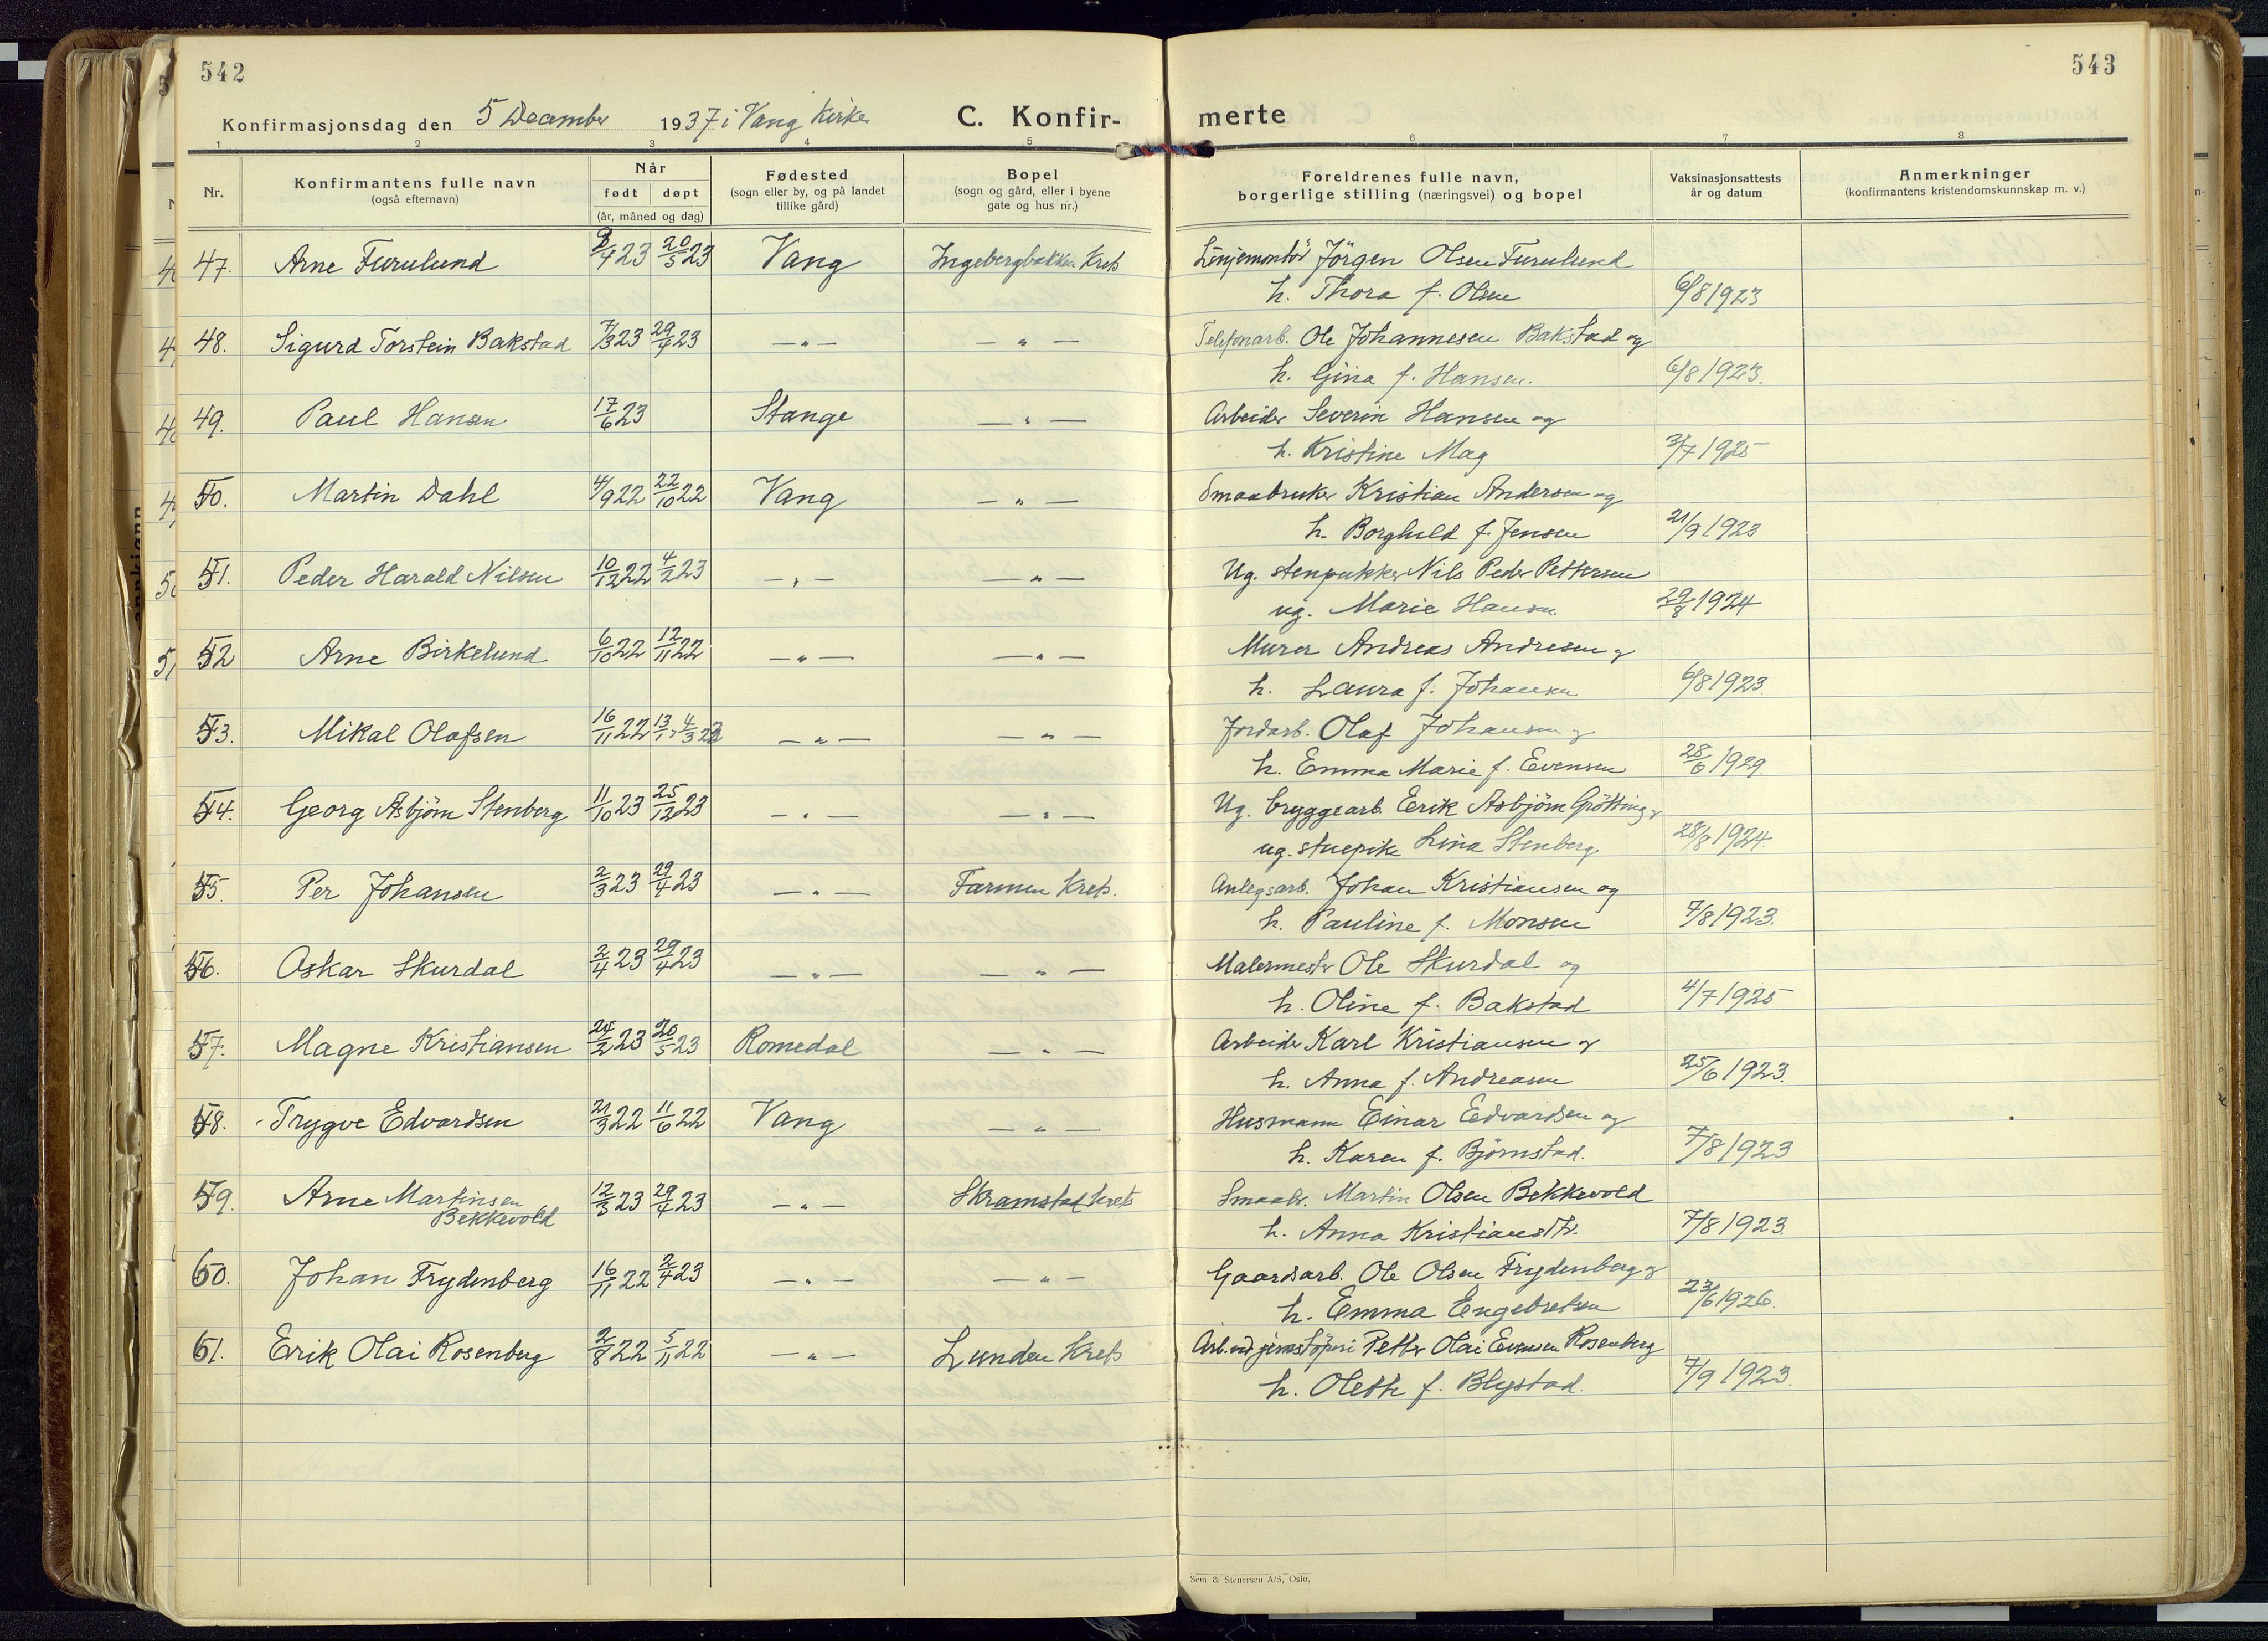 542
543
Konfirmasjonsdag den 5 December 1937 i Vang Kirke C. Konfir- merte
1 2 3 4 5 6 7 8
Nr. Konfirmantens fulle navn (også efternavn) Når født døpt (år, måned og dag) Fødested (sogn eller by, og på landet tillike gård) Bopel (sogn og gård, eller i byene gate og hus nr.) Foreldrenes fulle navn, borgerlige stilling (næringsvei) og bopel Vaksinasjonsattests år og datum Anmerkninger (konfirmantens kristendomskunnskap m. v.)
47. Arne Furulund /4 23 20/5 23 Vang Ingebergbakken Krets Linjemontör Jörgen Olsen Furulund
h. Thora f. Olsen 6/8 1923
48. Sigurd Torstein Bakstad 7/3 23 29/4 23 — " — — " — Telefonarb. Ole Johannesen Bakstad og
h. Gina f. Hansen. 6/8 1923.
49. Paul Hansen 17/6 23 Stange — " — Arbeider Severin Hansen og
h. Kristine Mag 3/7 1925
50. Martin Dahl 4/9 22 22/10 22 Vang — " — Smaabruker Kristian Andersen og
h. Borghild f. Jensen 21/9 1923
51. Peder Harald Nilsen 10/12 22 4/2 23 — " — — " — Ug. stenpukker Nils Peder Pettersen
ug. Marie Hansen. 29/8 1924
52 Arne Birkelund 6/10 22 12/11 22 — " — — " — Murer Andreas Andresen og
h. Laura f. Johansen 6/8 1923.
53. Mikal Olafsen 16/11 22 13/1, 4/3 23 — " — — " — Jordarb. Olaf Johansen og
h. Emma Marie f. Evensen 28/6 1929
54. Georg Asbjörn Stenberg 11/10 23 25/12 23 — " — — " — Ug. bryggearb. Erik Asbjörn Grötting og
ug. stuepike Lina Stenberg 28/8 1924.
55. Per Johansen 2/3 23 29/4 23 — " — Farmen Krets. Anlegsarb. Johan Kristiansen og
h. Pauline f. Monsen 7/8 1923.
56. Oskar Skurdal 2/4 23 29/4 23 — " — — " — Malermester Ole Skurdal og
h. Oline f. Bakstad 4/7 1925
57. Magne Kristiansen 24/2 23 20/5 23 Romedal — " — Arbeider Karl Kristiansen og
h. Anna f. Andreasen 25/6 1923.
58. Trygve Edvardsen 21/3 22 11/6 22 Vang — " — Husmann Einar Edvardsen og
h. Karen f. Björnstad. 7/8 1923
59. Arne Martinsen Bekkevold 12/3 23 29/4 23 — " — Skramstad Krets Smaabr. Martin Olsen Bekkevold
h. Anna Kristiansdtr. 7/8 1923.
60. Johan Frydenberg 16/11 22 2/4 23 — " — — " — Gaardsarb. Ole Olsen Frydenberg og
h. Emma Engebretsen 23/6 1926.
61. Erik Olai Rosenberg 2/8 22 5/11 22 — " — Lunden Krets Arb. ved jernstöperi Petter Olai Evensen Rosenberg
h. Olette f. Blystad. 7/9 1923.
Sem & Stenersen A/S, Oslo.